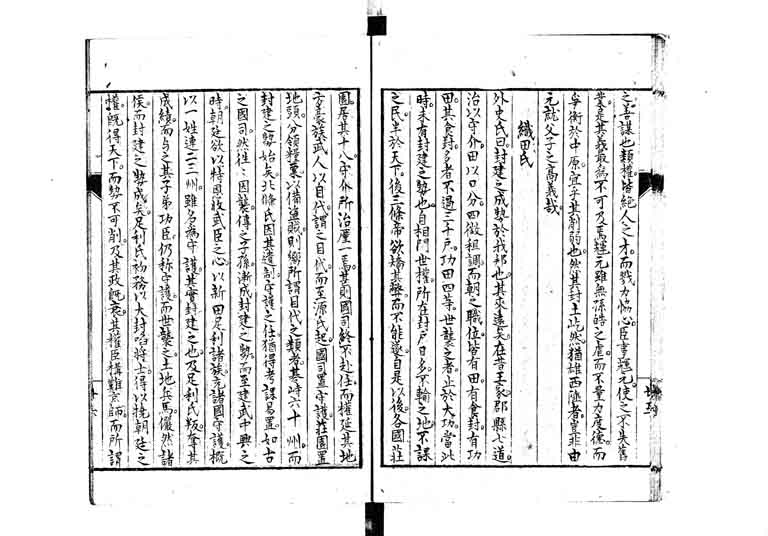 之善謀也類權皆絕人之才而戮力協心臣事輝元使之不失舊
業是其義最為不可及焉輝元雖無孫皓之虐而不量力度德而
爭衡於中原宜乎其削弱也然其封土屹然猶雄西陲者豈非由
元就父子之高義哉
織田氏
外史氏曰封建之成勢於我邦也其來遠矣在昔王家郡縣七道
治以守介田以口分四徵租調而朝之職位皆有田有食封有功
田其食封多者不過三千戶功田四等世襲之者止於大功當此
時未有封建之勢也自相門世權所在封戶日多不輸之地不課
之民半於天下後三條帝欲矯其弊而不能遂自是以後各國莊
園居其十八守介所治厪一焉甚則國司終不赴任而權延其地
方豪族武人以自代謂之目代而至源氏起國司置守護莊園置
地頭分領糧粟以備盜賊則嚮所謂目代之類者基峙六十州而
封建之勢始矣北條氏因其遺制守護之任猶得考課易置如古
之國司然往往因襲傳之子孫漸成封建之勢而至建武中興之
時朝廷欲以特恩收武臣之心以新田足利諸族充諸國守護概
以一姓連二三州雖名為守護其實封建之也及足利氏叛奪其
成績而与之其子弟功臣仍称守護而世襲之土地兵馬儼然諸
侯而封建之勢成矣足利氏初務以大封啗將士得以撓朝廷之
權既得天下而勢不可削及其政既衰其權臣構難京師而所謂